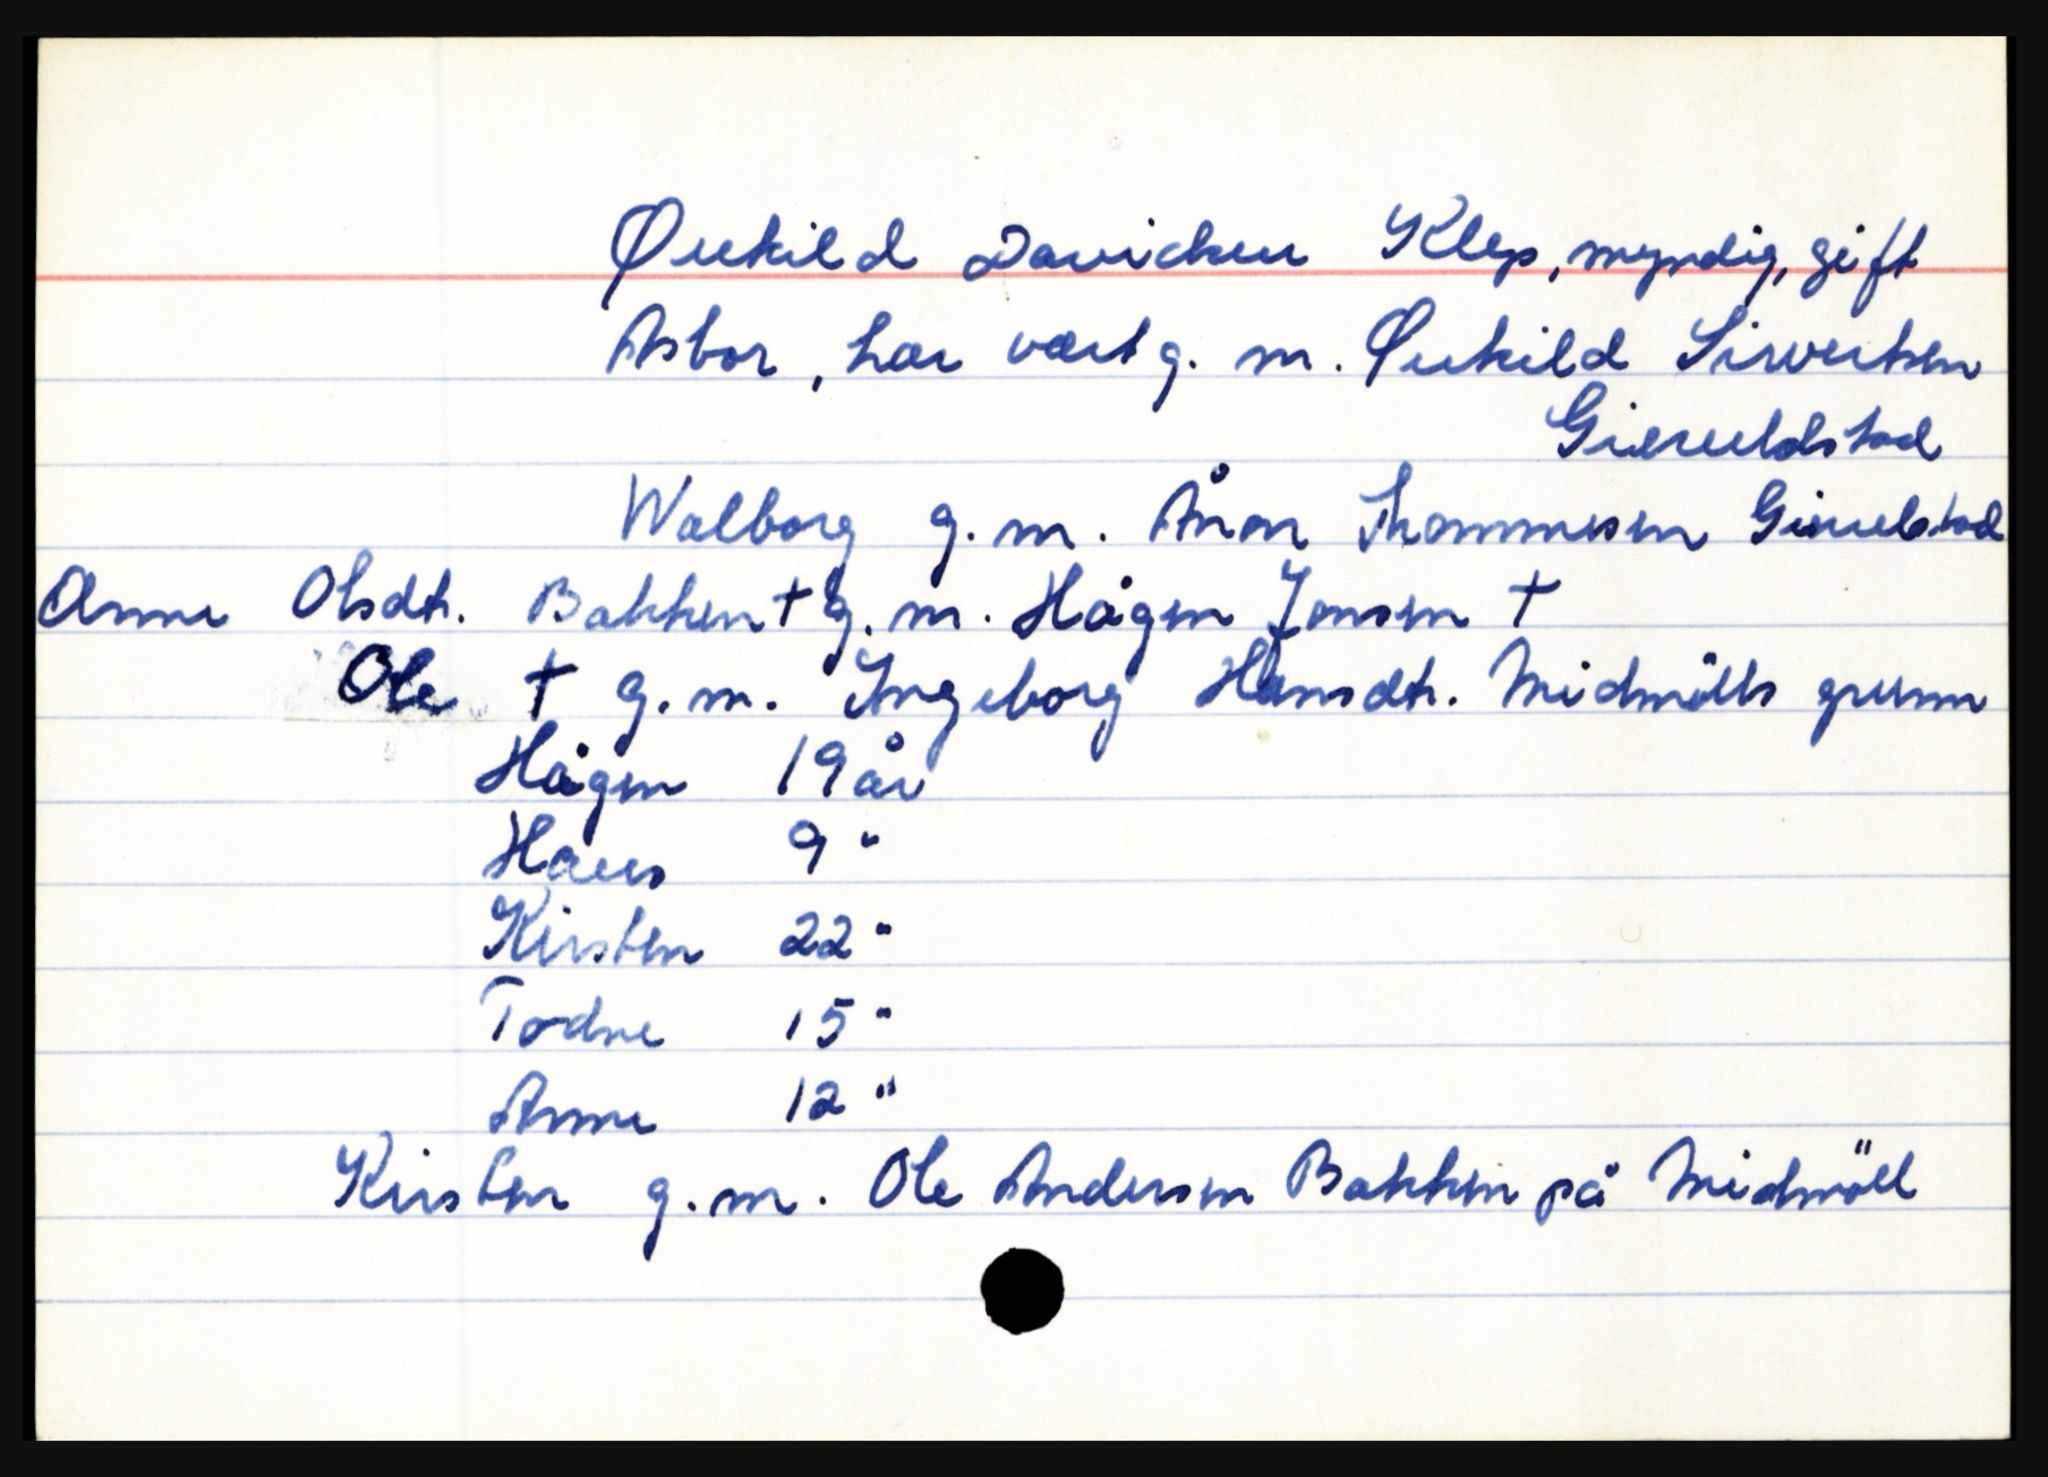 Ørekild Davidsen Klep, myndig, gift
Asbor, har vært g. m. Ørekild Sivertsen
Gieruldstad
Walborg g. m. Aron Thommesen Gierulstad
Anne Olsdtr. Bakken † g. m. Hågen Jonsen †
Ole † g. m. Ingeborg Hansdtr. Midmölls grunn
Hågen 19 år
Hans 9 "
Kirsten 22 "
Todne 15 "
Anne 12 "
Kirsten g. m. Ole Andersen Bakken på Midmöll